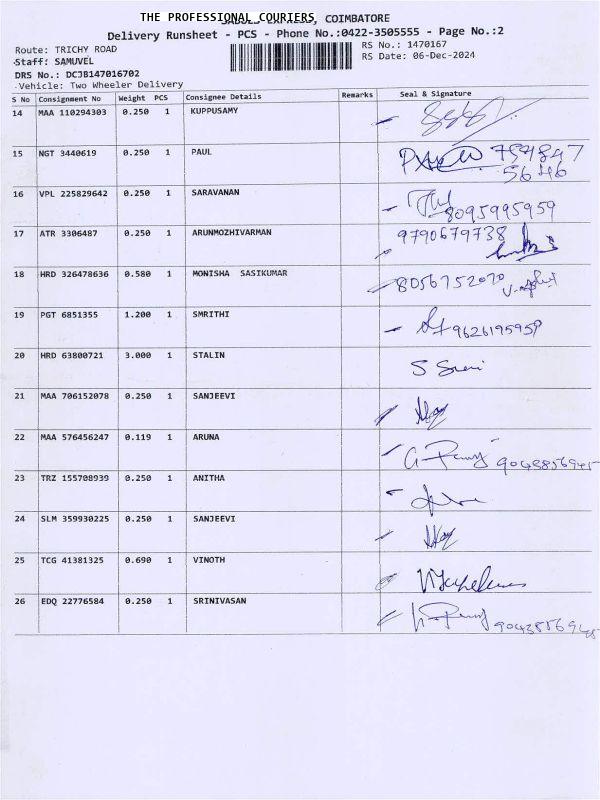 THE PROFESSIONAL COURIERS, COIMBATORE
Delivery Runsheet - PCS - Phone No.:0422-3505555 - Page No.:2
Route: TRICHY ROAD
RS No.: 1470167
Staff: SAMUVEL
RS Date: 06-Dec-2024
DRS No.: DCJB147016702
Vehicle: Two Wheeler Delivery
S No Consignment No Weight PCS Consignee Details Remarks Seal & Signature
14 MAA 110294303 0.250 1 KUPPUSAMY
15 NGT 3440619 0.250 1 PAUL
16 VPL 225829642 0.250 1 SARAVANAN 8095995959
17 ATR 3306487 0.250 1 ARUNMOZHIVARMAN 9790679738
18 HRD 326478636 0.580 1 MONISHA SASIKUMAR 8056752070
19 PGT 6851355 1.200 1 SMRITHI 9626195959
20 HRD 63800721 3.000 1 STALIN
21 MAA 706152078 0.250 1 SANJEEVI
22 MAA 576456247 0.119 1 ARUNA
23 TRZ 155708939 0.250 1 ANITHA
24 SLM 359930225 0.250 1 SANJEEVI
25 TCG 41381325 0.690 1 VINOTH
26 EDQ 22776584 0.250 1 SRINIVASAN